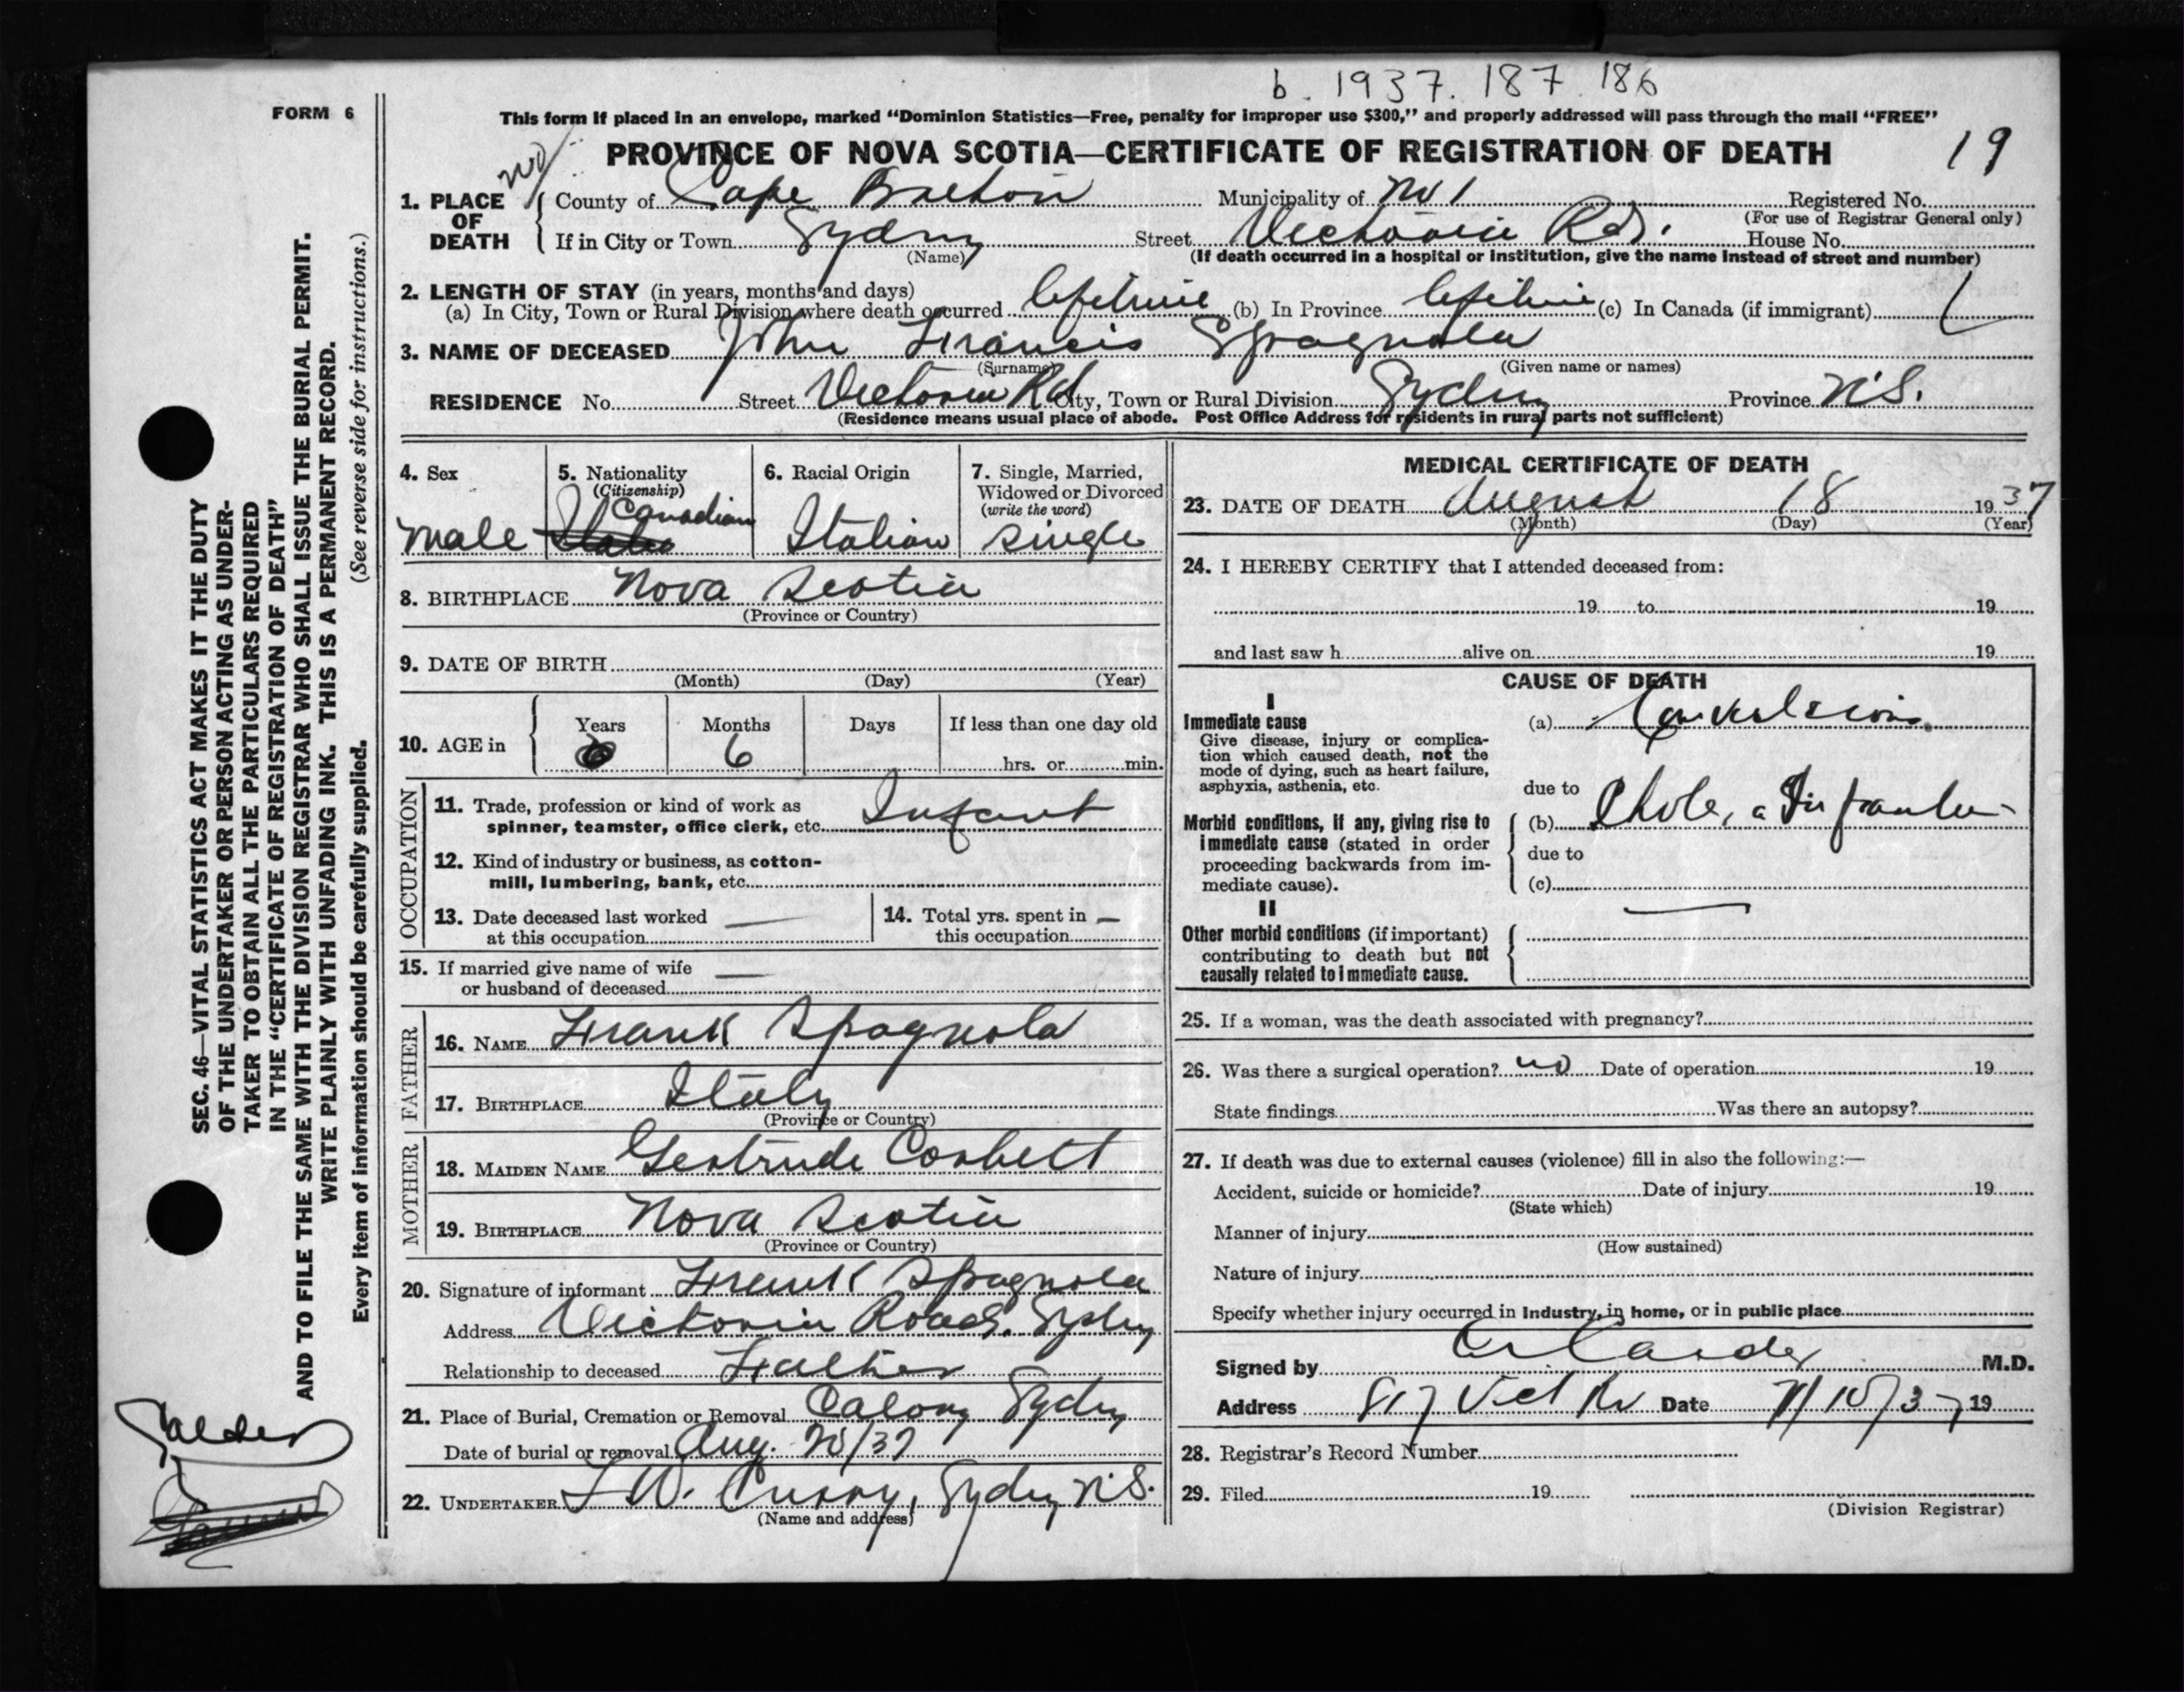 b. 1937. 187 186
FORM 6
This form if placed in an envelope, marked "Dominion Statistics—Free, penalty for improper use $300," and properly addressed will pass through the mail "FREE"
PROVINCE OF NOVA SCOTIA—CERTIFICATE OF REGISTRATION OF DEATH 19
1. PLACE OF DEATH
County of Cape Breton Municipality of No 1 Registered No.
(For use of Registrar General only)
If in City or Town Sydny Street Victoria Rd. House No.
(Name) (If death occurred in a hospital or institution, give the name instead of street and number)
2. LENGTH OF STAY (in years, months and days)
(a) In City, Town or Rural Division where death occurred lifetime (b) In Province lifetime (c) In Canada (if immigrant)
3. NAME OF DECEASED John Francis Spagnola
(Surname) (Given name or names)
RESIDENCE No. Street Victoria Rd City, Town or Rural Division Sydny Province N.S.
(Residence means usual place of abode. Post Office Address for residents in rural parts not sufficient)
4. Sex
male
5. Nationality
(Citizenship)
Canadian
6. Racial Origin
Italian
7. Single, Married,
Widowed or Divorced
(write the word)
Single
8. BIRTHPLACE Nova Scotia
(Province or Country)
9. DATE OF BIRTH
(Month) (Day) (Year)
10. AGE in
Years Months Days If less than one day old
6
hrs. or min.
OCCUPATION
11. Trade, profession or kind of work as
spinner, teamster, office clerk, etc. Infant
12. Kind of industry or business, as cotton-
mill, lumbering, bank, etc.
13. Date deceased last worked —
at this occupation
14. Total yrs. spent in —
this occupation
15. If married give name of wife —
or husband of deceased
FATHER
16. NAME Frank Spagnola
17. BIRTHPLACE Italy
(Province or Country)
MOTHER
18. MAIDEN NAME Gertrude Corbett
19. BIRTHPLACE Nova Scotia
(Province or Country)
20. Signature of informant Frank Spagnola
Address Victoria Road. Sydny
Relationship to deceased Father
21. Place of Burial, Cremation or Removal Calony Sydny
Date of burial or removal Aug. 20/37
22. UNDERTAKER F W. Curry, Sydny N.S.
(Name and address)
MEDICAL CERTIFICATE OF DEATH
23. DATE OF DEATH August 18 1937
(Month) (Day) (Year)
24. I HEREBY CERTIFY that I attended deceased from:
19 to 19
and last saw h alive on 19
CAUSE OF DEATH
I
Immediate cause
Give disease, injury or complica-
tion which caused death, not the
mode of dying, such as heart failure,
asphyxia, asthenia, etc.
(a) Convulsions
due to
Morbid conditions, if any, giving rise to
immediate cause (stated in order
proceeding backwards from im-
mediate cause).
(b) Cholera Infantum
due to
(c)
II
Other morbid conditions (if important)
contributing to death but not
causally related to immediate cause.
25. If a woman, was the death associated with pregnancy?
26. Was there a surgical operation? no Date of operation 19
State findings Was there an autopsy?
27. If death was due to external causes (violence) fill in also the following:—
Accident, suicide or homicide? Date of injury 19
(State which)
Manner of injury
(How sustained)
Nature of injury
Specify whether injury occurred in industry, in home, or in public place
Signed by M.D.
Address 817 Vict Rd Date 19
28. Registrar's Record Number
29. Filed 19
(Division Registrar)
SEC. 46—VITAL STATISTICS ACT MAKES IT THE DUTY
OF THE UNDERTAKER OR PERSON ACTING AS UNDER-
TAKER TO OBTAIN ALL THE PARTICULARS REQUIRED
IN THE "CERTIFICATE OF REGISTRATION OF DEATH"
AND TO FILE THE SAME WITH THE DIVISION REGISTRAR WHO SHALL ISSUE THE BURIAL PERMIT.
WRITE PLAINLY WITH UNFADING INK. THIS IS A PERMANENT RECORD.
Every item of information should be carefully supplied. (See reverse side for instructions.)